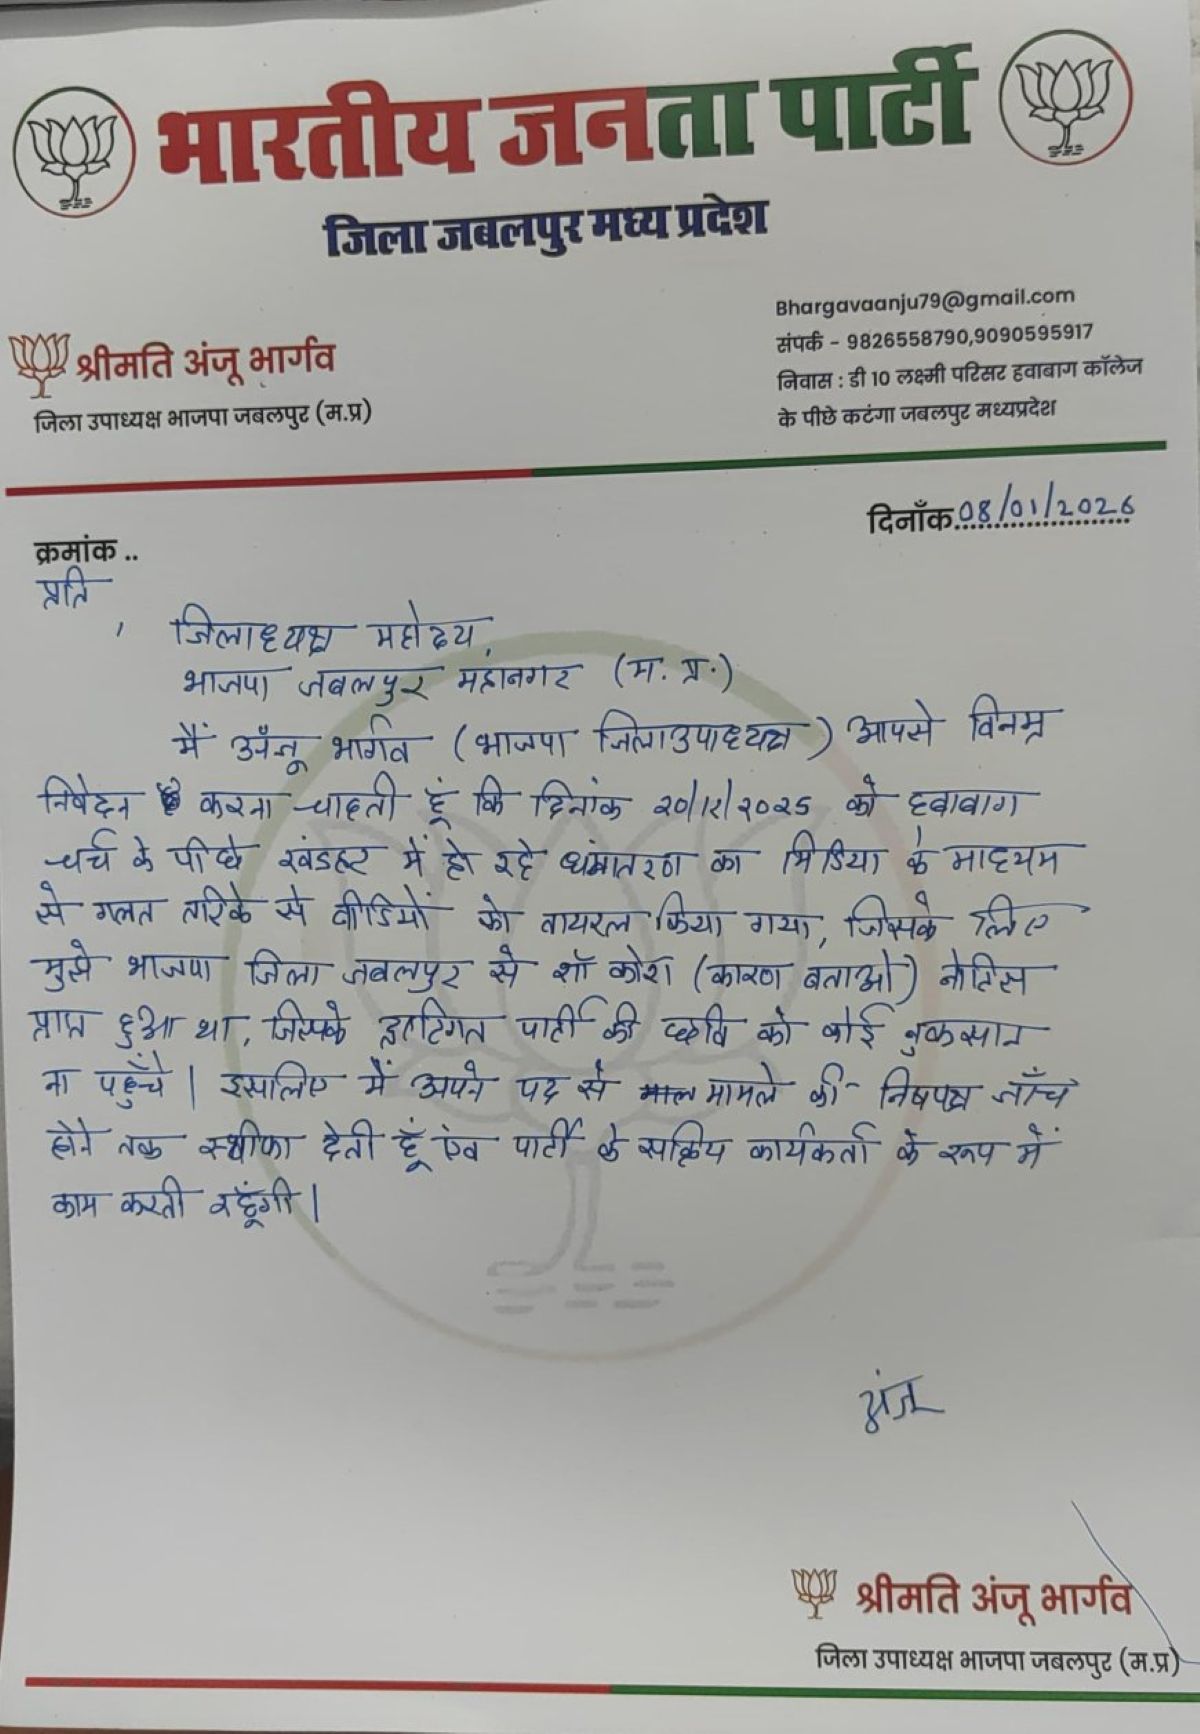 भारतीय जनता पार्टी
जिला जबलपुर मध्य प्रदेश
Bhargavaanju79@gmail.com
संपर्क - 9826558790,9090595917
निवास : डी 10 लक्ष्मी परिसर हवाबाग कॉलेज
के पीछे कटंगा जबलपुर मध्यप्रदेश
श्रीमति अंजू भार्गव
जिला उपाध्यक्ष भाजपा जबलपुर (म.प्र)
दिनाँक 08/01/2026
क्रमांक ..
प्रति
, जिलाध्यक्ष महोदय,
भाजपा जबलपुर महानगर (म. प्र.)
मैं अँजू भार्गव (भाजपा जिलाउपाध्यक्ष) आपसे विनम्र
निवेदन करना चाहती हूं कि दिनांक २०/१२/२०२५ को हवाबाग
चर्च के पीछे खंडहर में हो रहे धर्मातरण का मिडिया के माध्यम
से गलत तरिके से वीडियों को वायरल किया गया, जिसके लिए
मुझे भाजपा जिला जबलपुर से शॉ कोश (कारण बताओ) नोटिस
प्राप्त हुआ था, जिसके दृष्टिगत पार्टी की छवि को कोई नुकसान
ना पहुँचे | इसलिए मैं अपने पद से मामले की निष्पक्ष जाँच
होने तक स्थीफा देती हूँ एंव पार्टी के सक्रिय कार्यकर्ता के रूप में
काम करती रहूँगी |
अंजू
श्रीमति अंजू भार्गव
जिला उपाध्यक्ष भाजपा जबलपुर (म.प्र)